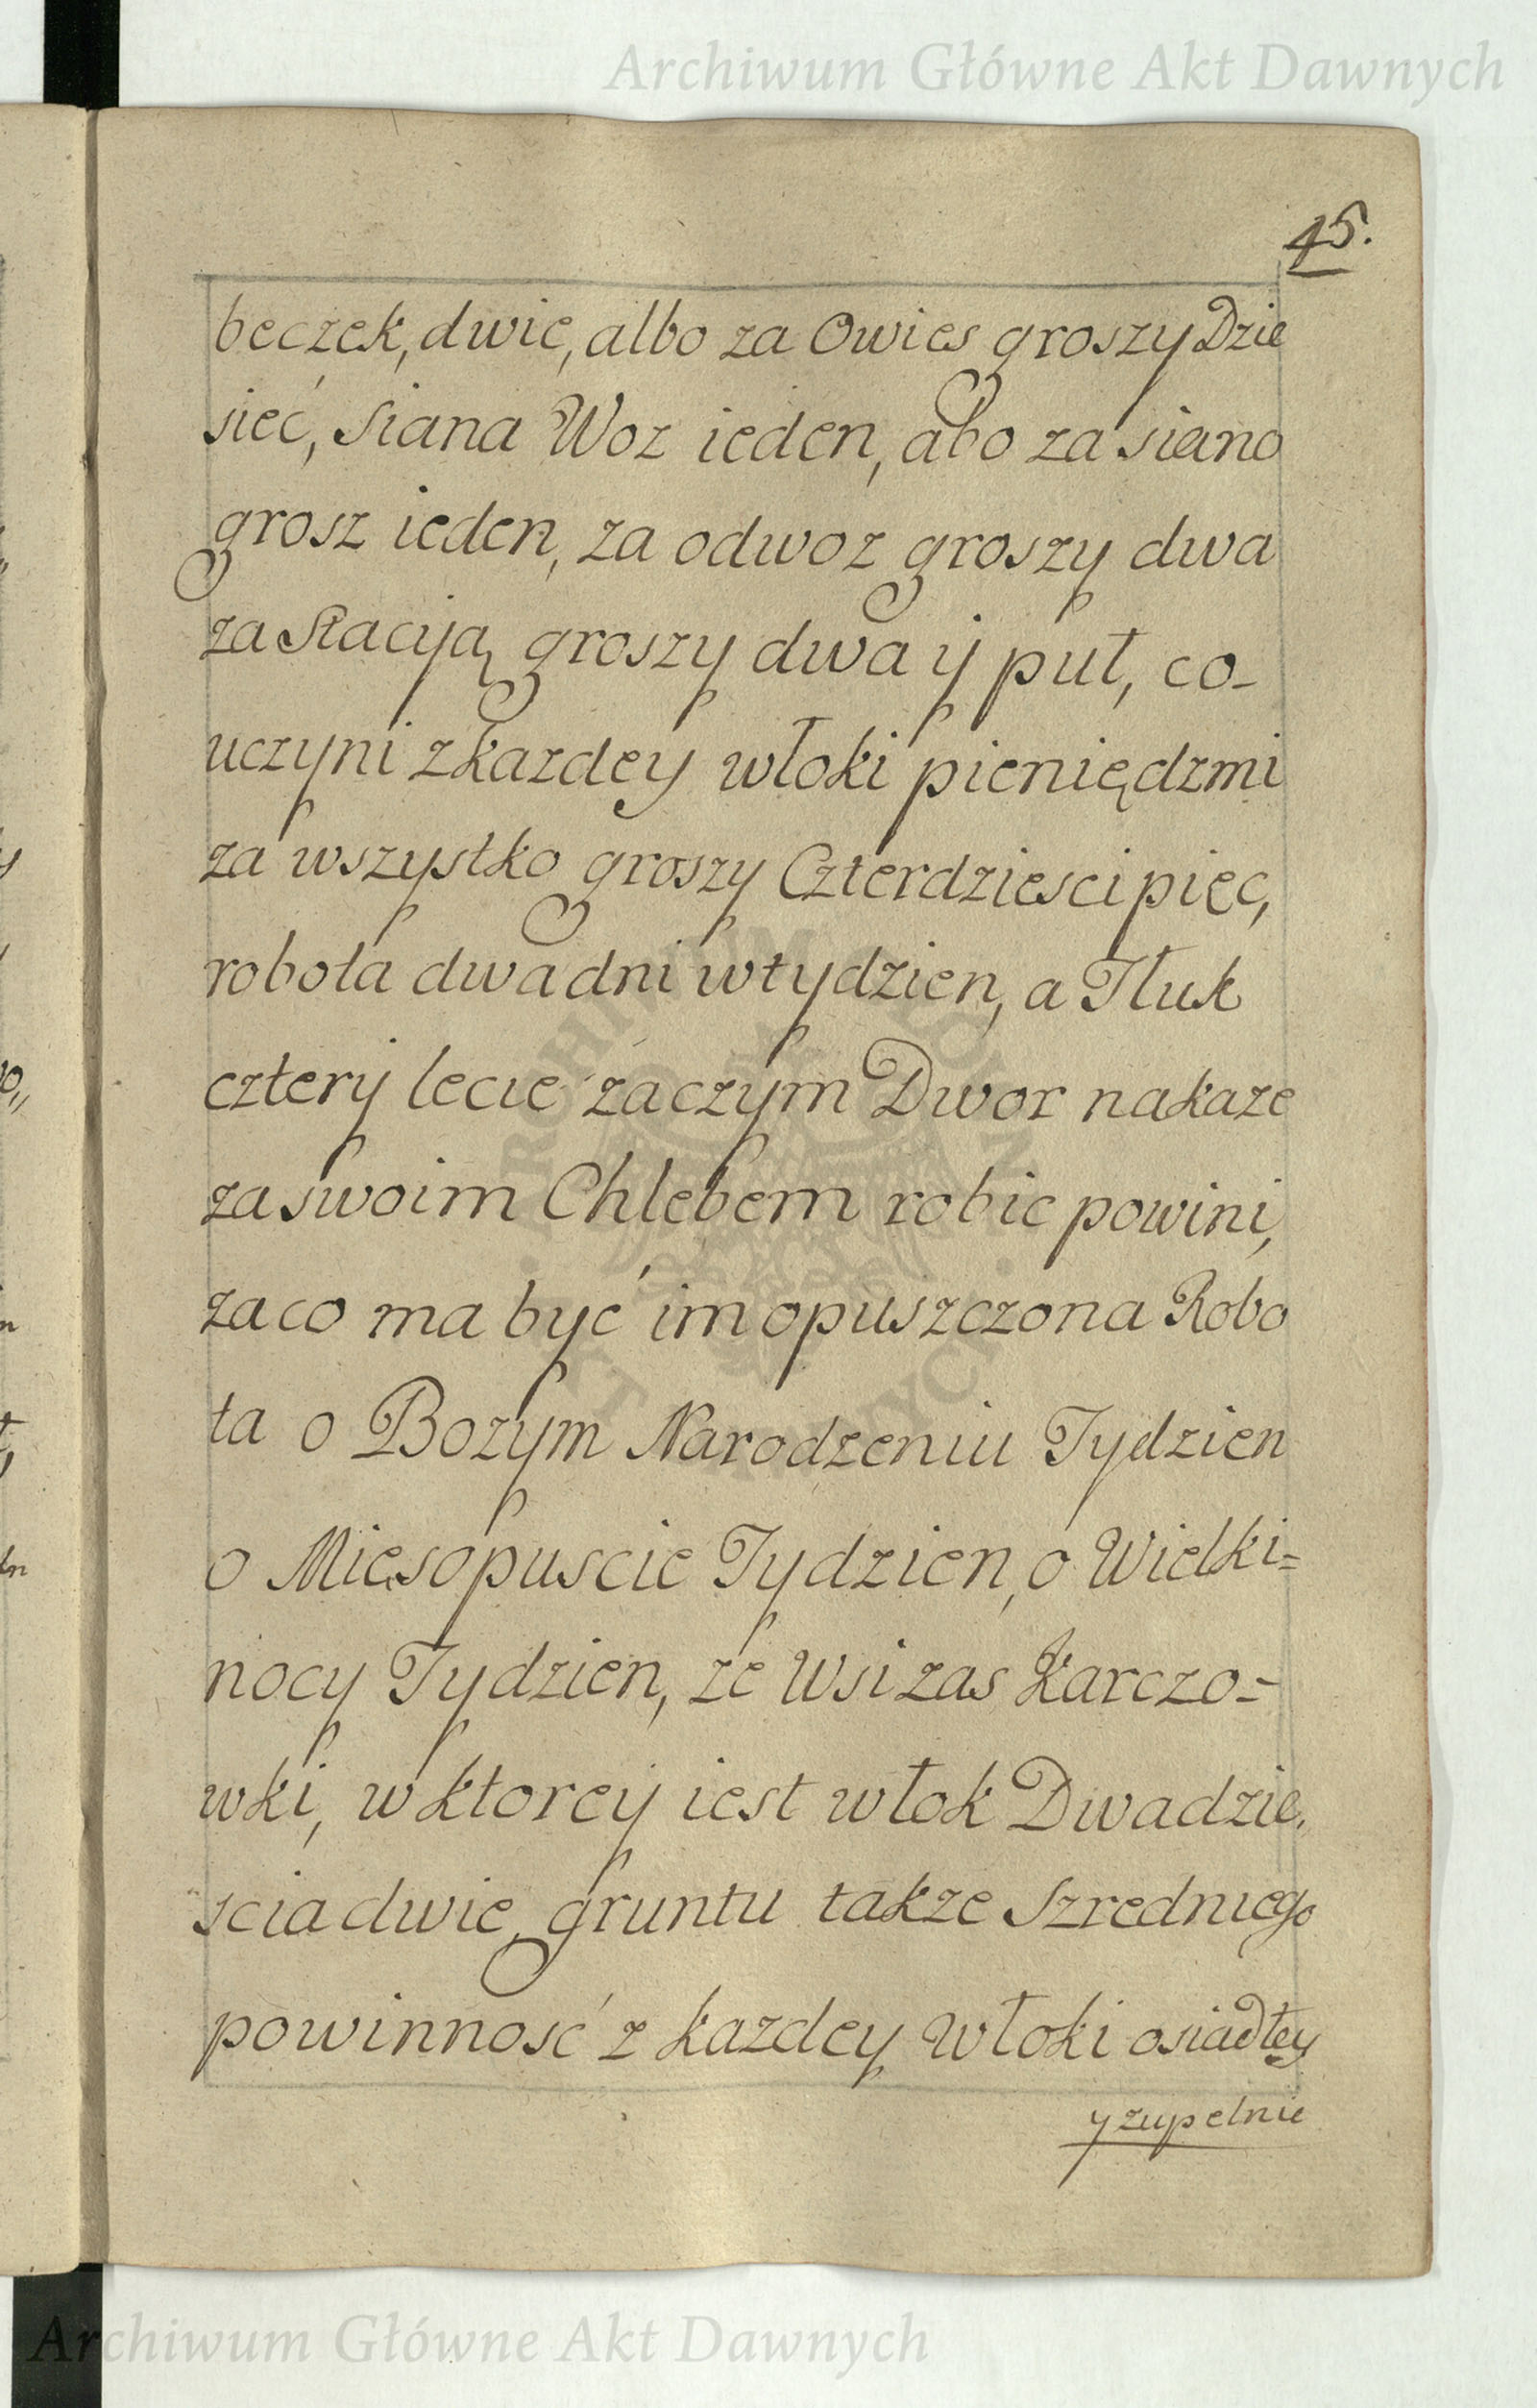 Archiwum Główne Akt Dawnych
45.
beczek, dwie, albo za Owies groszy Dzie
sieć, siana Woz ieden, abo za siano
grosz ieden, za odwoz groszy dwa
za staciją groszy dwa ÿ puł, co-
uczyni z kazdey włoki pieniędzmi
za wszystko groszy Czterdziesci pięc,
robota dwa dni w tydzien, a Tłuk
czterÿ lecie zaczym Dwor nakaze
za swoim Chlebem robic powini,
za co ma być im opuszczona Robo
ta o Bozym Narodzeniu Tydzien
o Mięsopuscie Tydzien, o Wielki=
nocy Tydzien, ze Wsi zas Karczo=
wki, w ktoreÿ iest włok Dwadzie.
scia dwie, gruntu takze szredniego
powinność z kazdey Włoki osiadłey
y zupełnie
Archiwum Główne Akt Dawnych